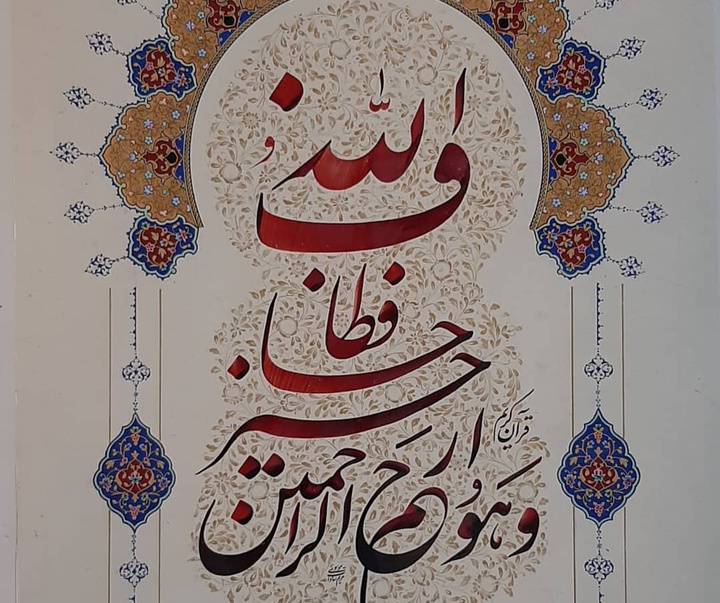 فالله
خیر
حافظا
وهُو ارحَم الراحمین
قرآن کریم